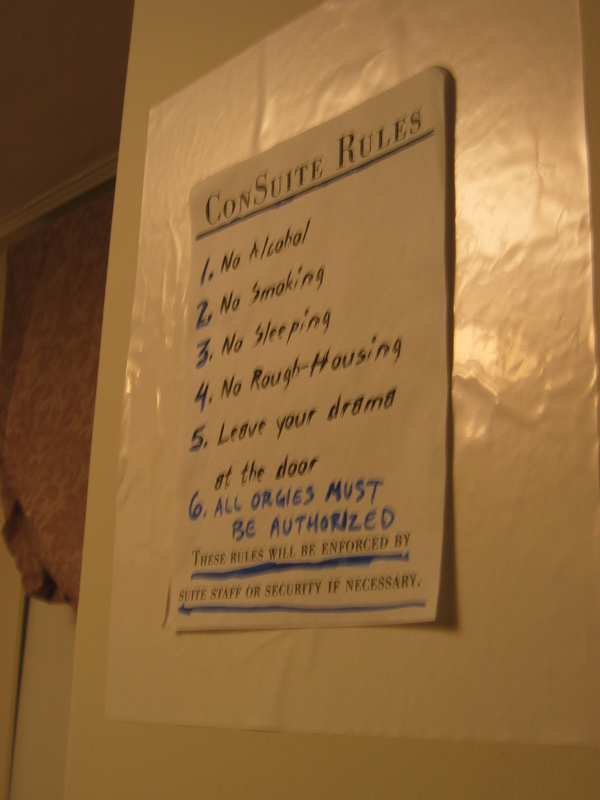 ConSuite Rules
1. No Alcohol
2. No Smoking
3. No Sleeping
4. No Rough-Housing
5. Leave your drama
at the door
6. ALL ORGIES MUST
BE AUTHORIZED
THESE RULES WILL BE ENFORCED BY
SUITE STAFF OR SECURITY IF NECESSARY.